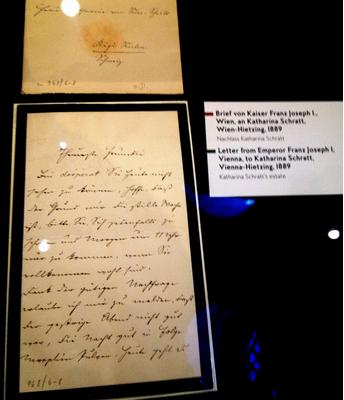 Rigi Kulm
Schweiz
Theuerste Freundin
Bin desperat Sie heute nicht
sehen zu können, hoffe, daß
der Grund nur die stille Woche
ist, bitte Sie, Sich jedenfalls zu
schonen und Morgen um
nur zu kommen, wenn Sie
vollkommen wohl sind.
Dank der gütigen Nachfrage
erlaube ich mir zu melden, daß
der gestrige Abend nicht gut
war, die Nacht gut in Folge
Morphin Pulver, heute geht es
Brief von Kaiser Franz Joseph I.,
Wien, an Katharina Schratt,
Wien-Hietzing, 1889
Nachlass Katharina Schratt
Letter from Emperor Franz Joseph I,
Vienna, to Katharina Schratt,
Vienna-Hietzing, 1889
Katharina Schratt's estate